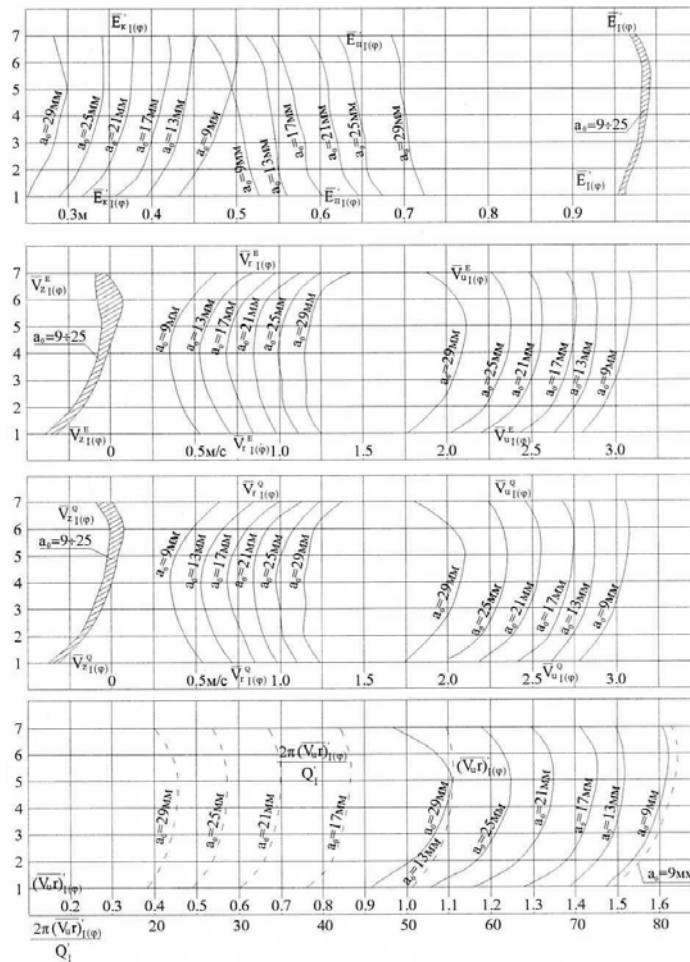 E̅'к I(φ) E̅'п I(φ) E̅'I(φ)
7
6
5
4
3
2
1
a₀=29мм a₀=25мм a₀=21мм a₀=17мм a₀=13мм a₀=9мм a₀=9мм a₀=13мм a₀=17мм a₀=21мм a₀=25мм a₀=29мм a₀=9÷25
E̅'к I(φ) E̅'п I(φ) E̅'I(φ)
0.3м 0.4 0.5 0.6 0.7 0.8 0.9
V̅z I(φ)ᴱ V̅r I(φ)ᴱ V̅u I(φ)ᴱ
7
6
5
4
3
2
1
a₀=9÷25 a₀=9мм a₀=13мм a₀=17мм a₀=21мм a₀=25мм a₀=29мм a₀=29мм a₀=25мм a₀=21мм a₀=17мм a₀=13мм a₀=9мм
V̅z I(φ)ᴱ V̅r I(φ)ᴱ V̅u I(φ)ᴱ
0 0.5м/с 1.0 1.5 2.0 2.5 3.0
V̅z I(φ)^Q V̅r I(φ)^Q V̅u I(φ)^Q
7
6
5
4
3
2
1
a₀=9÷25 a₀=9мм a₀=13мм a₀=17мм a₀=21мм a₀=25мм a₀=29мм a₀=29мм a₀=25мм a₀=21мм a₀=17мм a₀=13мм a₀=9мм
V̅z I(φ)^Q V̅r I(φ)^Q V̅u I(φ)^Q
0 0.5м/с 1.0 1.5 2.0 2.5 3.0
7
6
5
4
3
2
1
2π(V̅ur)'I(φ) (V̅ur)'I(φ)
Q'I
a₀=29мм a₀=25мм a₀=21мм a₀=17мм a₀=29мм a₀=13мм a₀=25мм a₀=21мм a₀=17мм a₀=13мм a₀=9мм a₀=9мм
(V̅ur)'I(φ)
0.2 0.3 0.4 0.5 0.6 0.7 0.8 0.9 1.0 1.1 1.2 1.3 1.4 1.5 1.6
2π(V̅ur)'I(φ) 20 30 40 50 60 70 80
Q'I